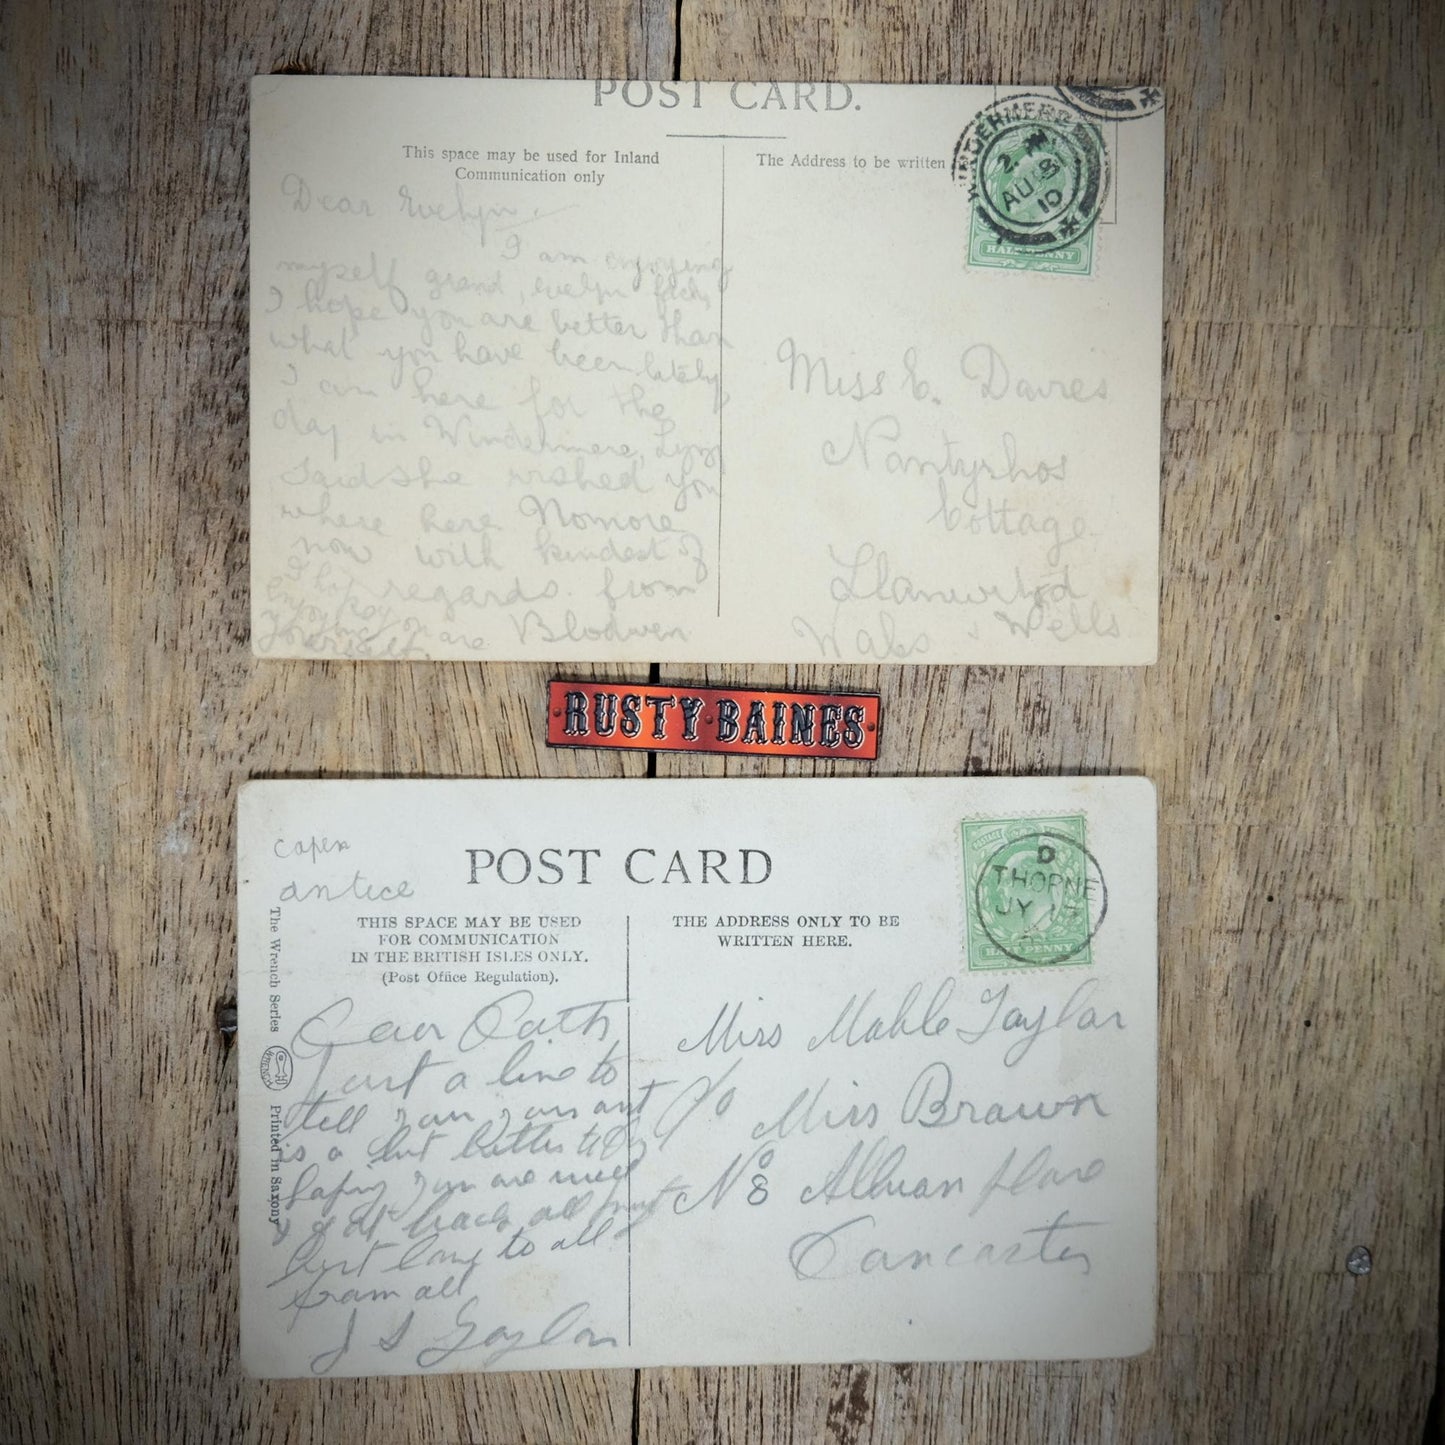 POST CARD.
This space may be used for Inland
Communication only
The Address to be written
WINDERMERE
AU
10
HALFPENNY
Dear Evelyn.
I am enjoying
myself grand, evelyn
I hope you are better than
what you have been lately
I am here for the
day in Windermere,
Said she wished you
where here Nomore
now with kindest of
regards from
Blodwen
I hope you are
enjoying
yourself.
Miss E. Davies
Nantyrhos
Cottage.
Llanwrtyd
Wells
Wales
RUSTY BAINES
capen
antice
POST CARD
THIS SPACE MAY BE USED
FOR COMMUNICATION
IN THE BRITISH ISLES ONLY.
(Post Office Regulation).
THE ADDRESS ONLY TO BE
WRITTEN HERE.
The Wrench Series
WRENCH
Printed in Saxony
POSTAGE
D
THORNE
JY
HALFPENNY
Dear
Just a line to
tell your
is a bit better
hoping you are well
all
best love to all
from all
J S Taylor
Miss Mable Taylor
c/o Miss Brawn
No 8
Lancaster